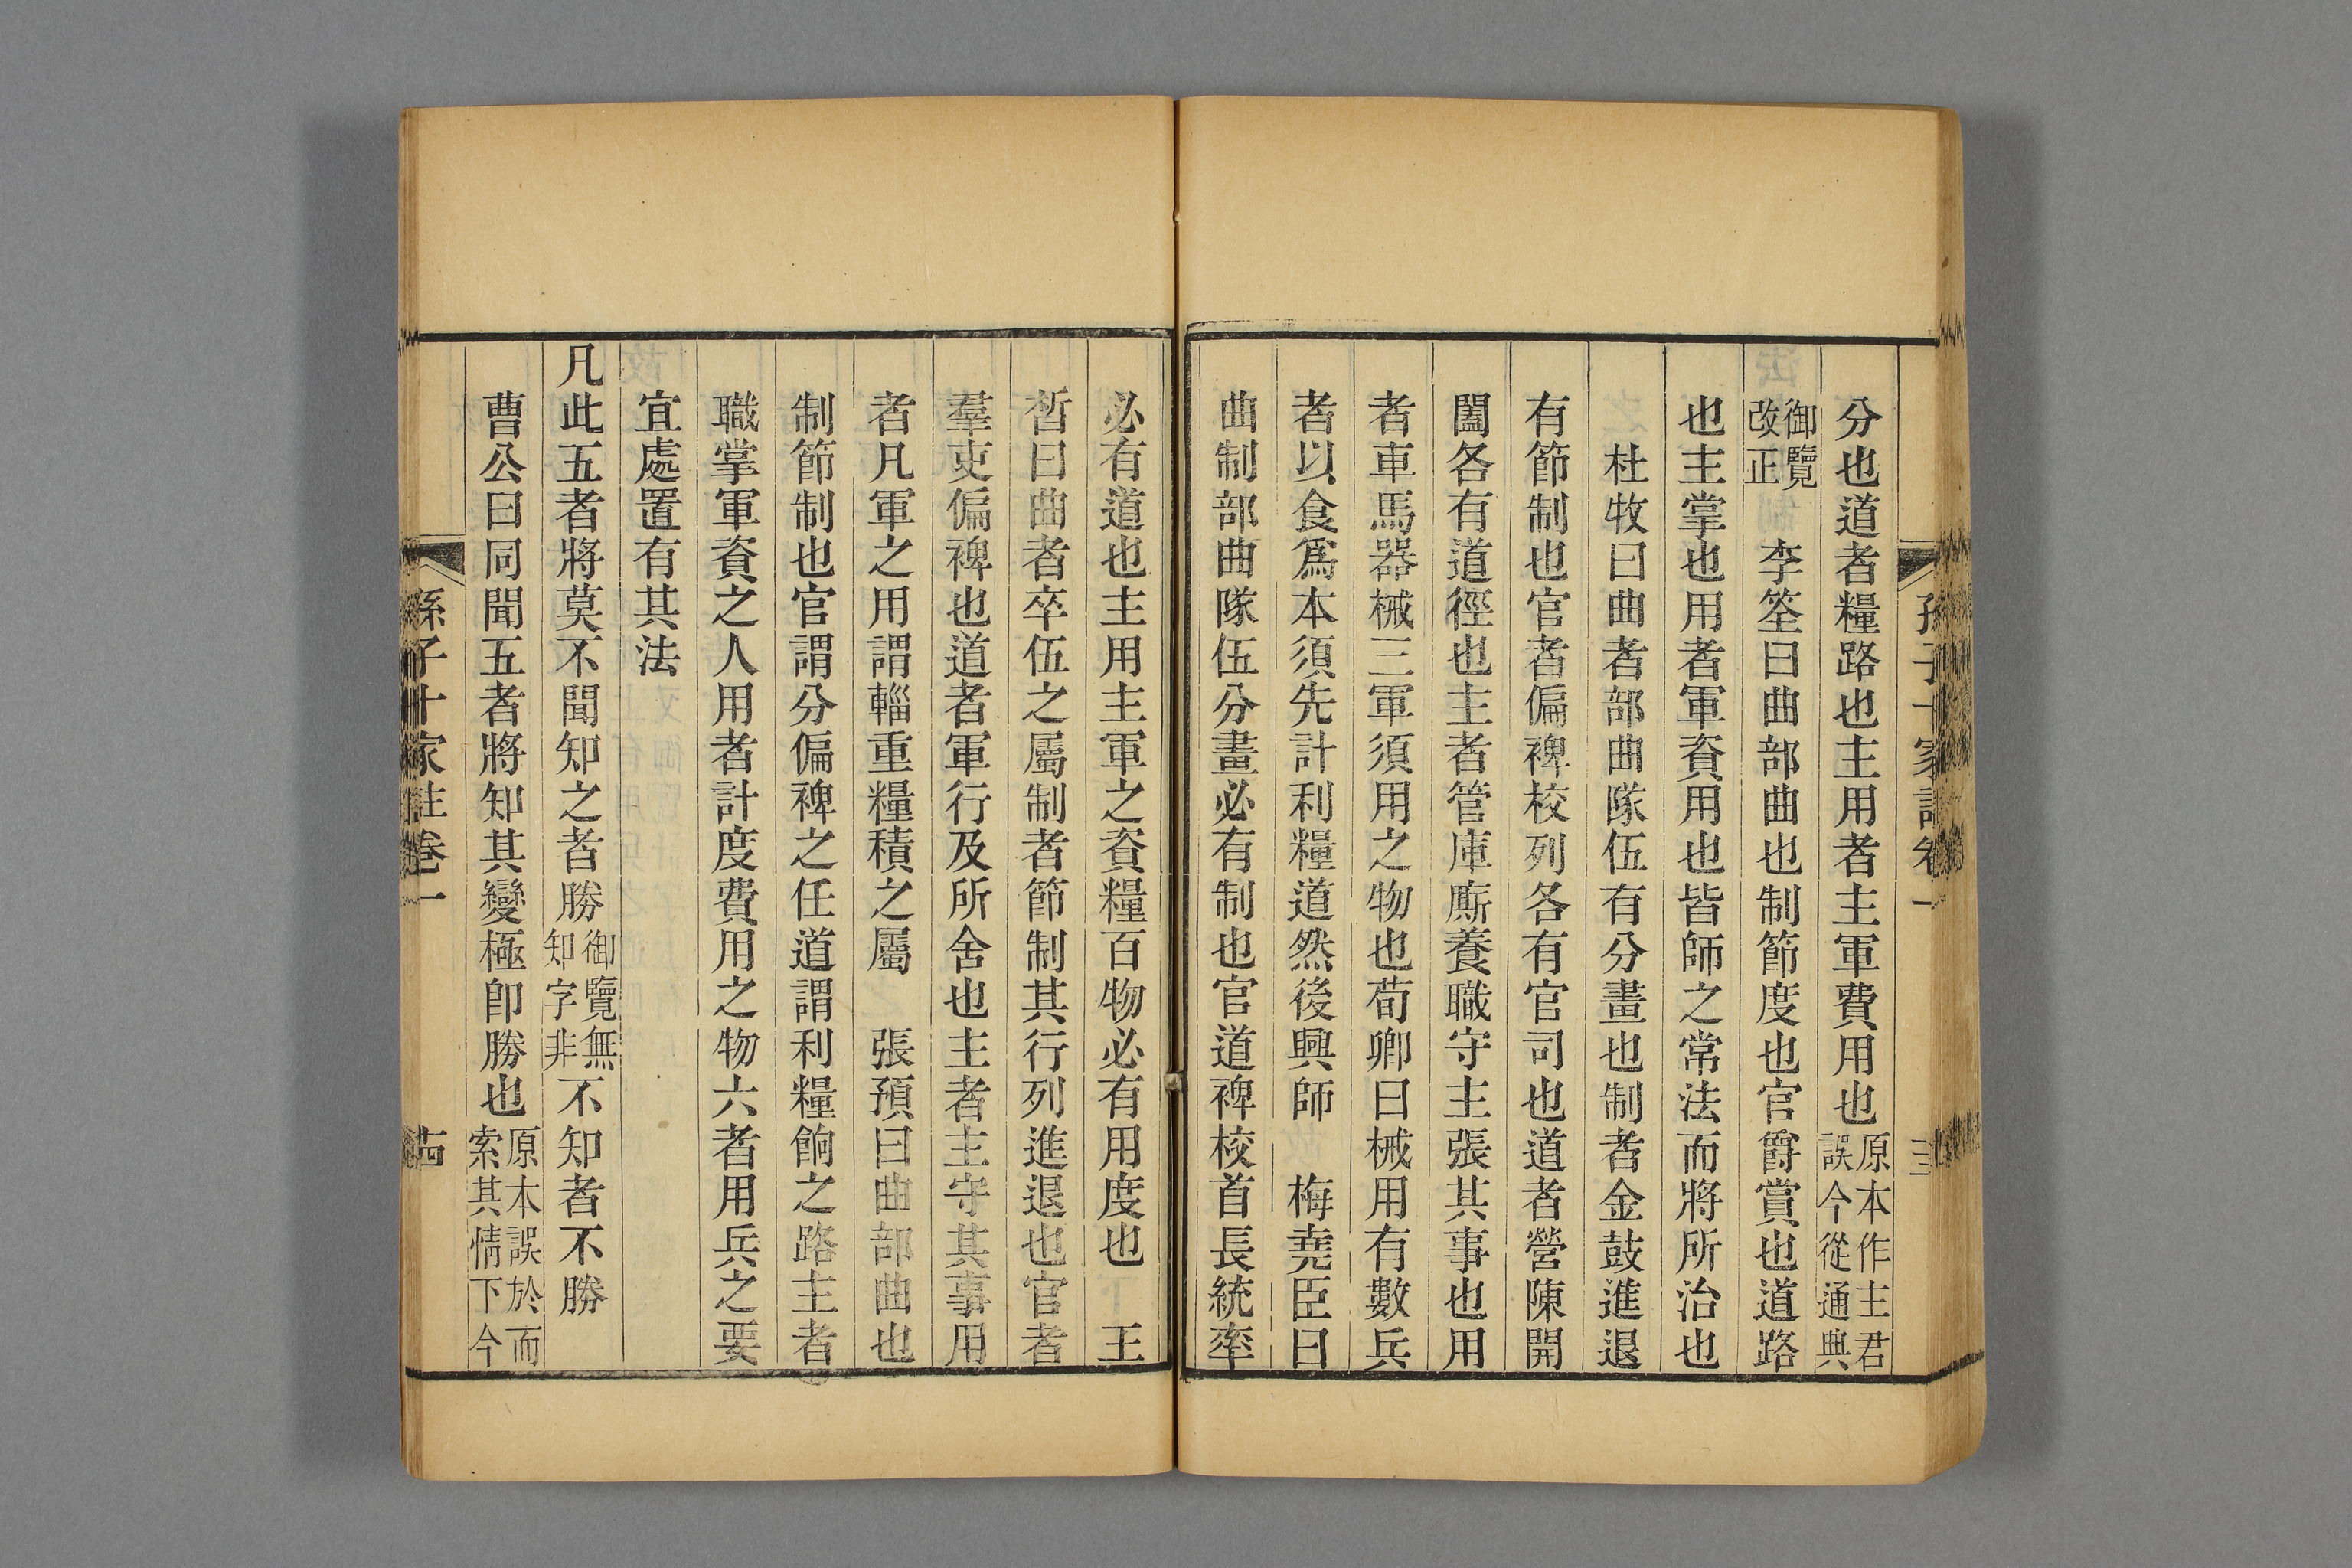 孫子十家註卷一
分也道者糧路也主用者主軍費用也原本作主君誤今從通典
御覽改正　李筌曰曲部曲也制節度也官爵賞也道路
也主掌也用者軍資用也皆師之常法而將所治也
杜牧曰曲者部曲隊伍有分畫也制者金鼓進退
有節制也官者偏裨校列各有官司也道者營陳開
闔各有道徑也主者管庫廝養職守主張其事也用
者車馬器械三軍須用之物也荀卿曰械用有數兵
者以食爲本須先計利糧道然後興師　梅堯臣曰
曲制部曲隊伍分畫必有制也官道裨校首長統率
必有道也主用主軍之資糧百物必有用度也　王
晳曰曲者卒伍之屬制者節制其行列進退也官者
羣吏偏裨也道者軍行及所舍也主者主守其事用
者凡軍之用謂輜重糧積之屬　張預曰曲部曲也
制節制也官謂分偏裨之任道謂利糧餉之路主者
職掌軍資之人用者計度費用之物六者用兵之要
宜處置有其法
凡此五者將莫不聞知之者勝御覽無知字非不知者不勝
曹公曰同聞五者將知其變極卽勝也原本誤於而索其情下今
孫子十家註卷一　十四